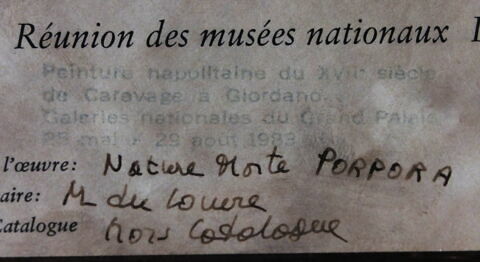 Réunion des musées nationaux
Peinture napolitaine du XVIIe siècle
de Caravage à Giordano
Galeries nationales du Grand Palais
25 mai - 29 août 1983
l'œuvre: Nature Morte PORPORA
aire: M du Louvre
Catalogue Hors Catalogue